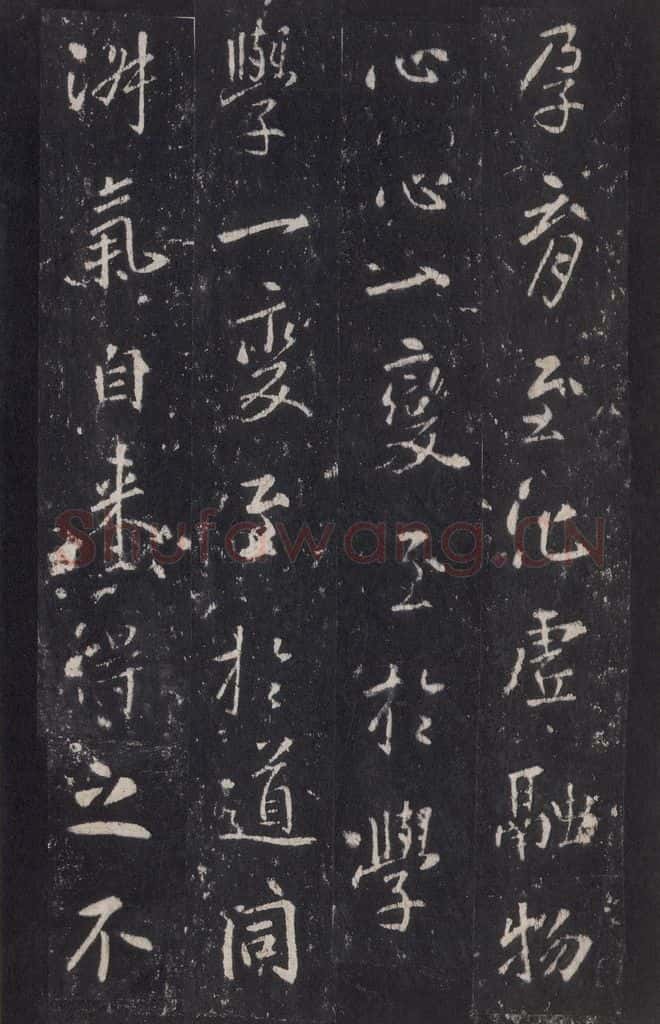 孕育至化虛融物
心心一變至於學
學一變至於道同
氣自得之不
Shufawang.CN